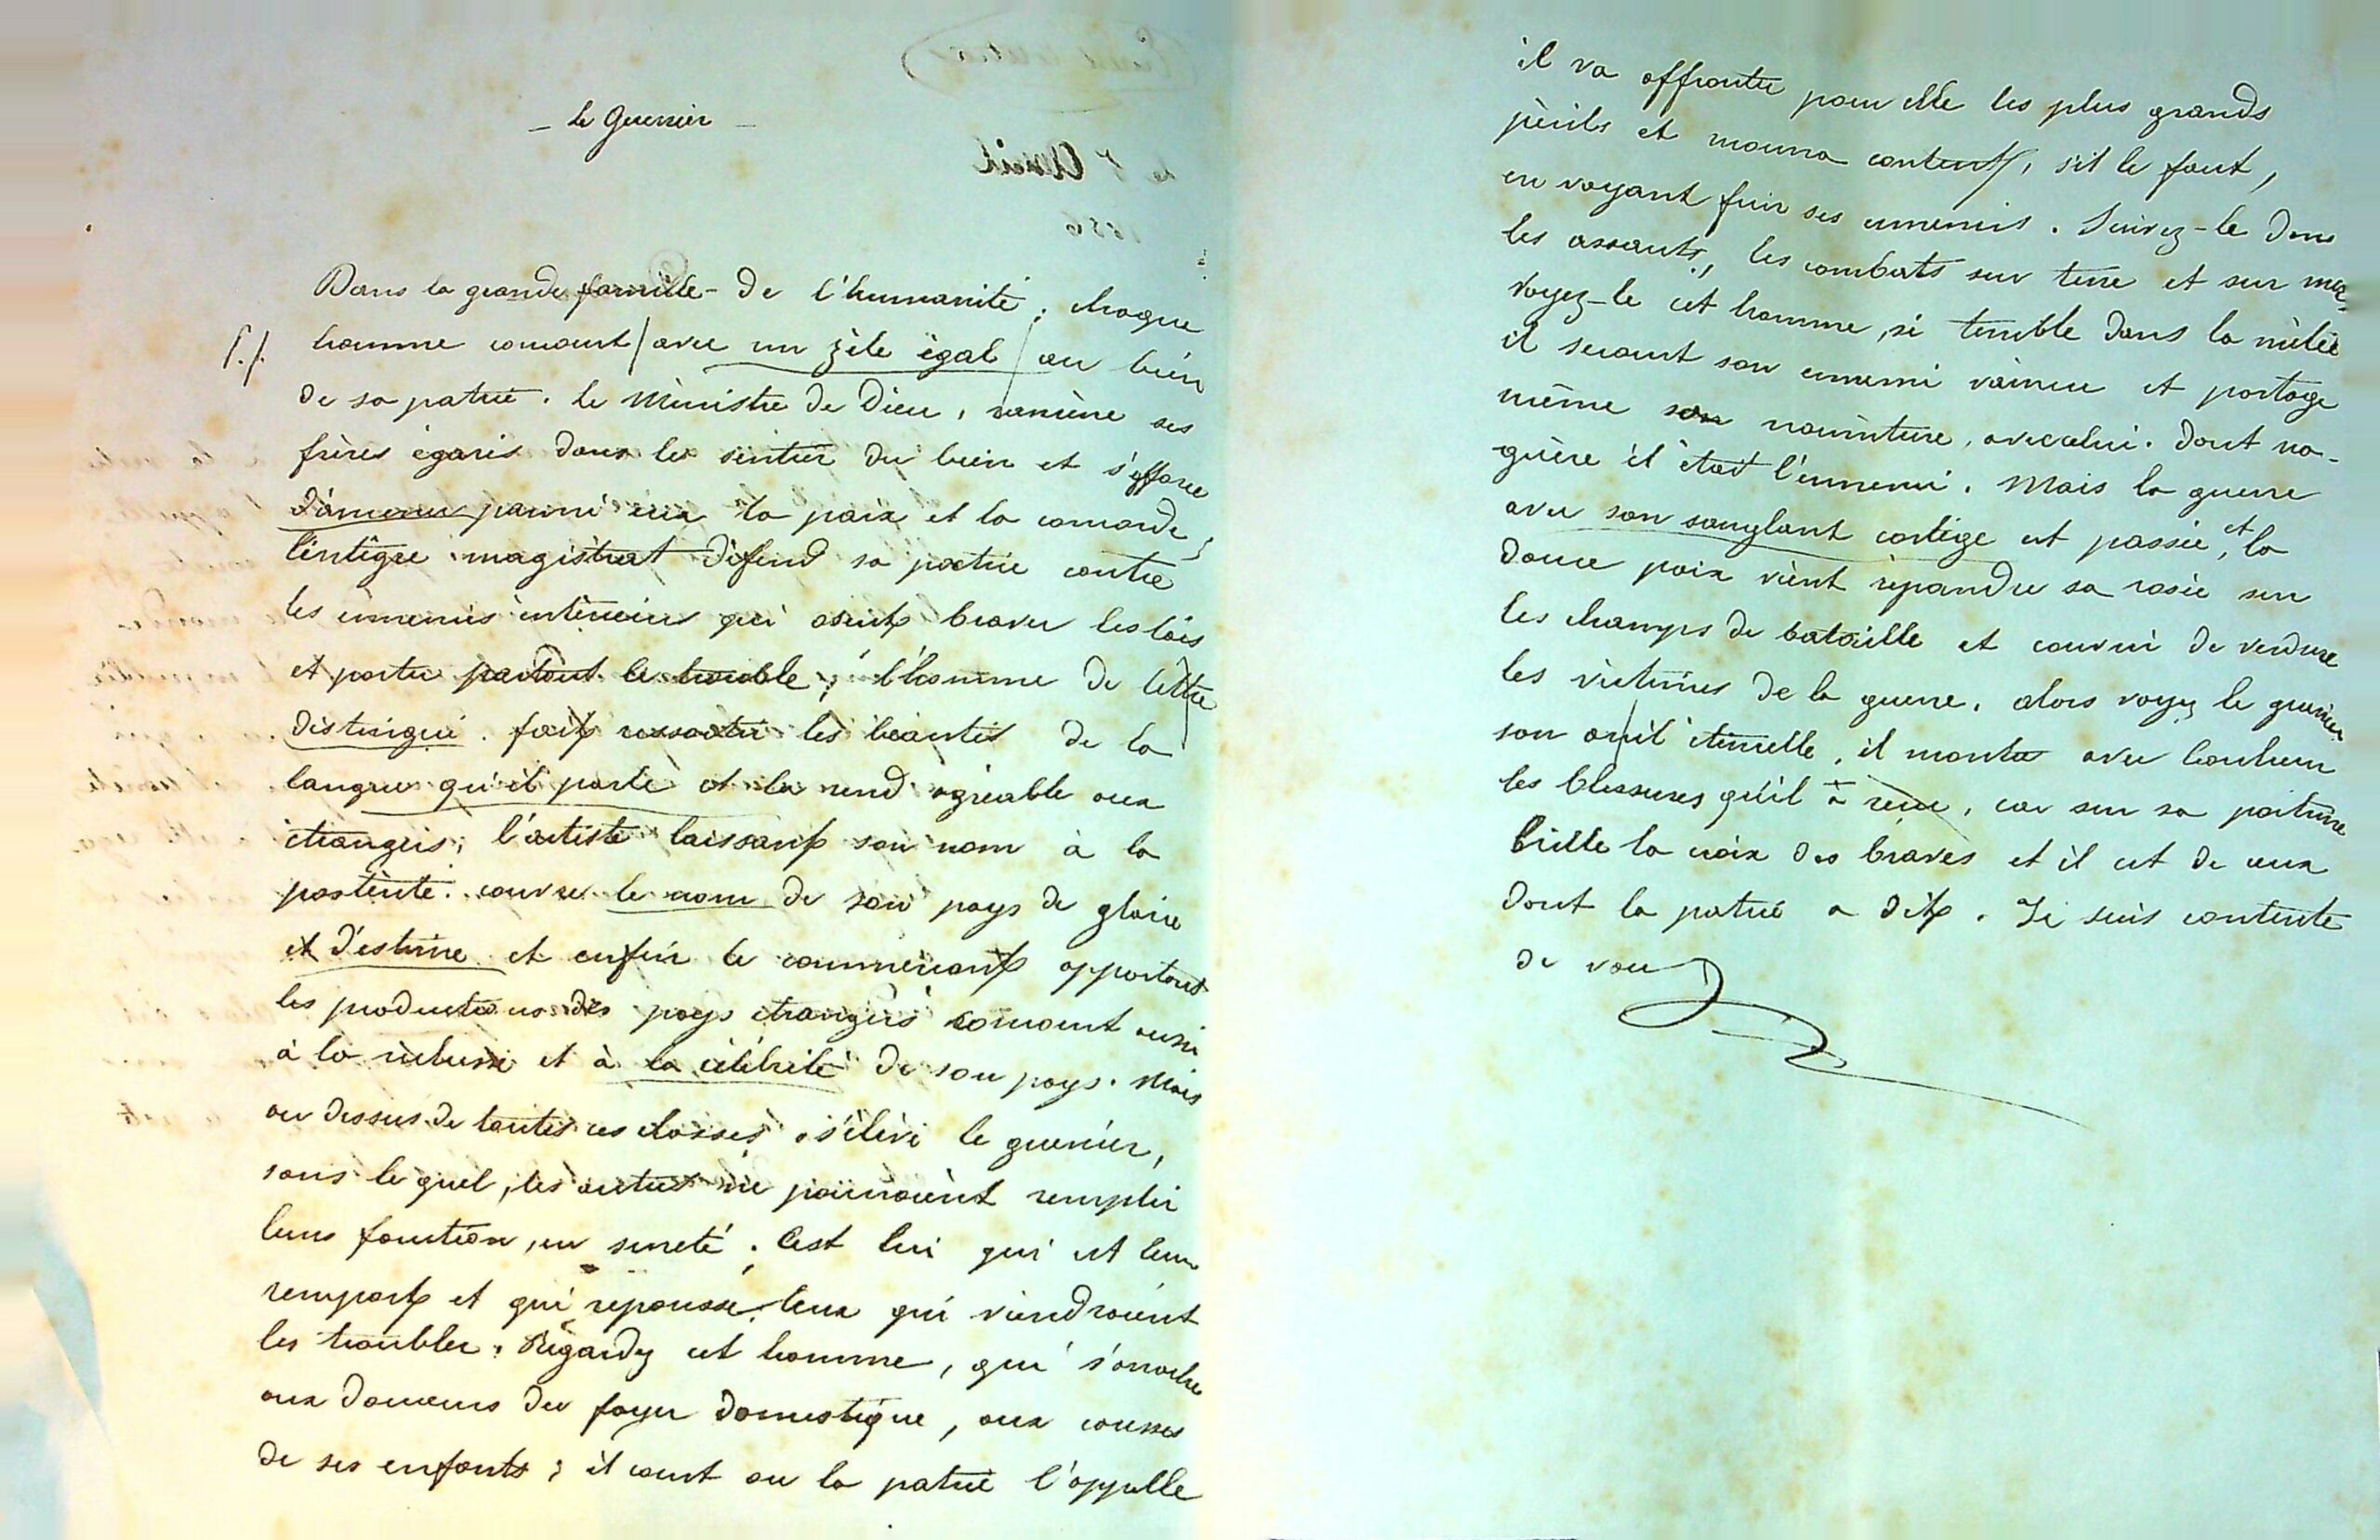 - Le Guerrier -
Dans la grande famille de l'humanité, chaque
homme concourt avec un zèle égal au bien
de sa patrie. Le Ministre de Dieu, ramène ses
frères égarés dans les sentier du bien et s'efforce
d'amener parmi eux la paix et la concorde;
l'intègre magistrat défend sa patrie contre
les ennemis intérieur qui osent braver les lois
et porter partout le trouble; l'homme de lettre
distingué. fait ressortir les beautés de la
langue qu'il parle et la rend agréable aux
étrangers; l'artiste laissant son nom à la
postérité. couvre le nom de son pays de gloire
et d'estime et enfin le commerçant apportant
les productions des pays étrangers concourt aussi
à la richesse et à la célébrité de son pays. Mais
au dessus de toutes ces classes, s'élève le guerrier,
sans le quel, les autres ne pourraient remplir
leurs fonction, en sureté. C'est lui qui est leur
rempart et qui repousse ceux qui viendraient
les troubler. Regardez cet homme, qui s'arrache
aux douceurs du foyer domestique, aux
de ses enfants; il court ou la patrie l'appelle
il va affronter pour elle les plus grands
périls et mourra content, s'il le faut,
en voyant fuir ses ennemis. Suivez-le dans
les assauts, les combats sur terre et sur mer,
voyez-le cet homme, si terrible dans la mêlée
il secourt son ennemi vaincu et partage
même son nourriture, avec celui. dont na-
guère il était l'ennemi. Mais la guerre
avec son sanglant cortège est passée, et la
douce paix vient répandre sa rosée sur
les champs de bataille et couvrir de verdure
les victimes de la guerre. alors voyez le guerrier
son œil étincelle, il montre avec bonheur
les blessures qu'il à reçue, car sur sa poitrine
brille la croix des braves et il est de ceux
dont la patrie a dit. Je suis contente
de vous